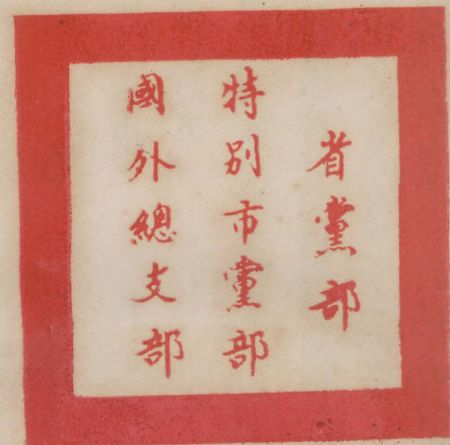 省黨部
特別市黨部
國外總支部